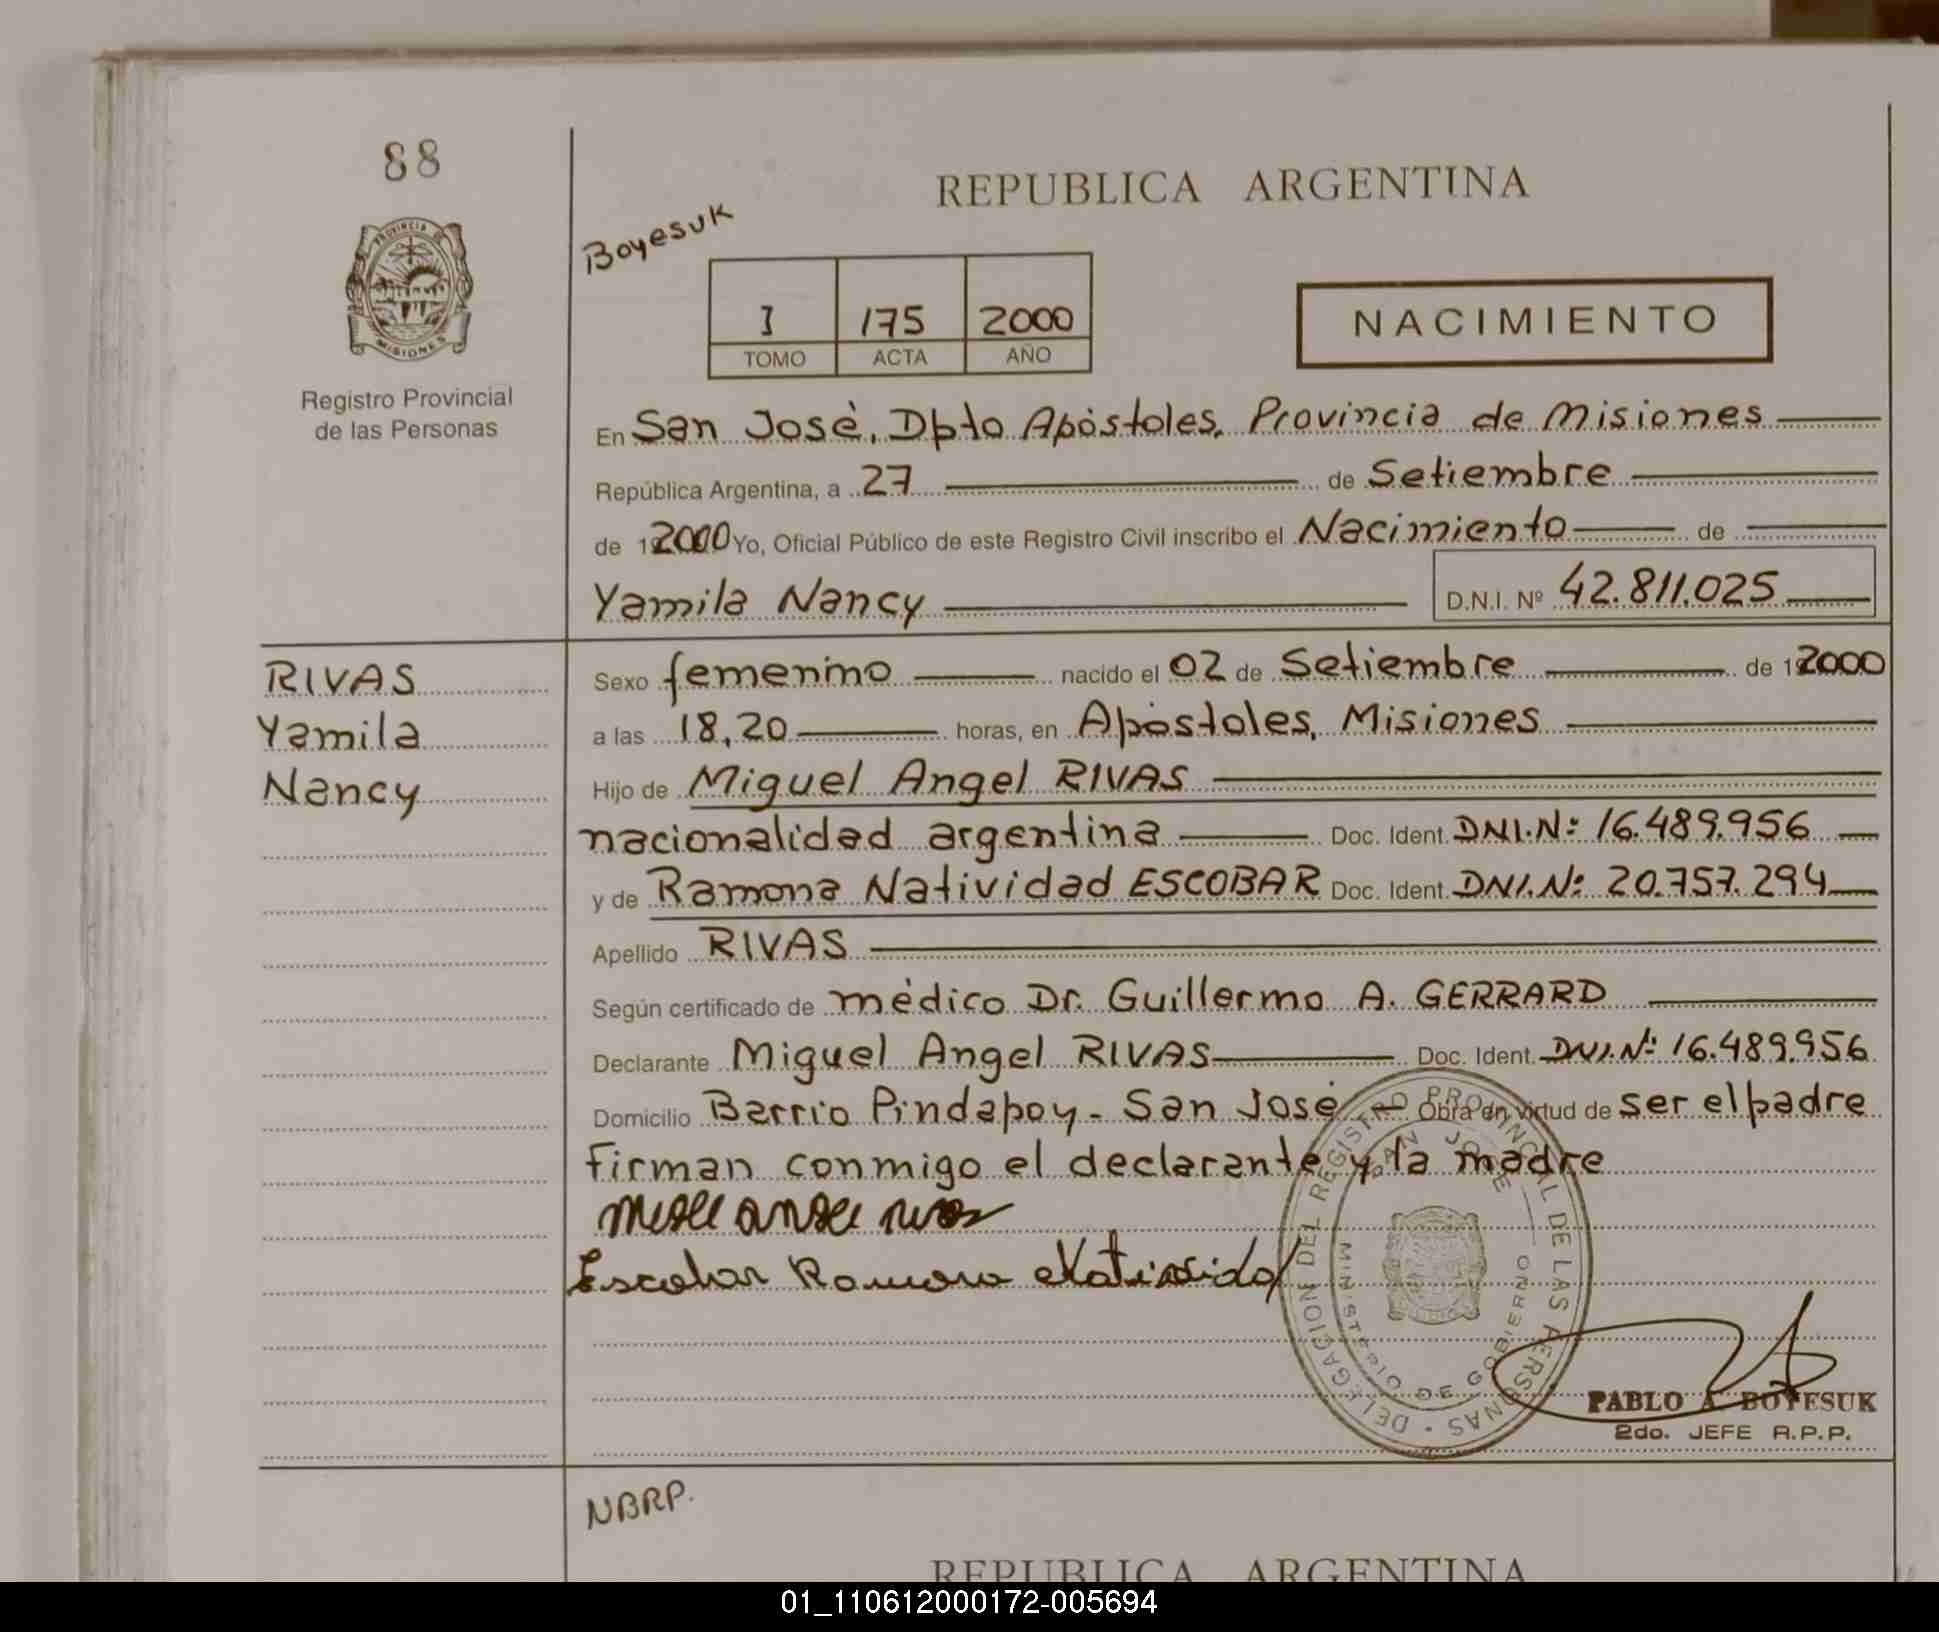 88
REPUBLICA ARGENTINA
Boyesuk
PROVINCIA DE
MISIONES
I 175 2000
TOMO ACTA AÑO
NACIMIENTO
Registro Provincial
de las Personas
En San José, Dpto Apóstoles, Provincia de Misiones
República Argentina, a 27 de Setiembre
de 2000 Yo, Oficial Público de este Registro Civil inscribo el Nacimiento de
Yamila Nancy D.N.I. Nº 42.811.025
RIVAS
Yamila
Nancy
Sexo femenino nacido el 02 de Setiembre de 2000
a las 18,20 horas, en Apóstoles, Misiones
Hijo de Miguel Angel RIVAS
nacionalidad argentina Doc. Ident. DNI.Nº: 16.489.956
y de Ramona Natividad ESCOBAR Doc. Ident. DNI.Nº: 20.757.294
Apellido RIVAS
Según certificado de médico Dr. Guillermo A. GERRARD
Declarante Miguel Angel RIVAS Doc. Ident. DNI.Nº: 16.489.956
Domicilio Barrio Pindapoy - San José Obra en virtud de ser el padre
Firman conmigo el declarante y la madre
Escobar Ramona Natividad
DELEGACION DEL REGISTRO PROVINCIAL DE LAS PERSONAS
SAN JOSE
MINISTERIO DE GOBIERNO
PABLO A. BOYESUK
2do. JEFE R.P.P.
NBRP.
REPUBLICA ARGENTINA
01_110612000172-005694